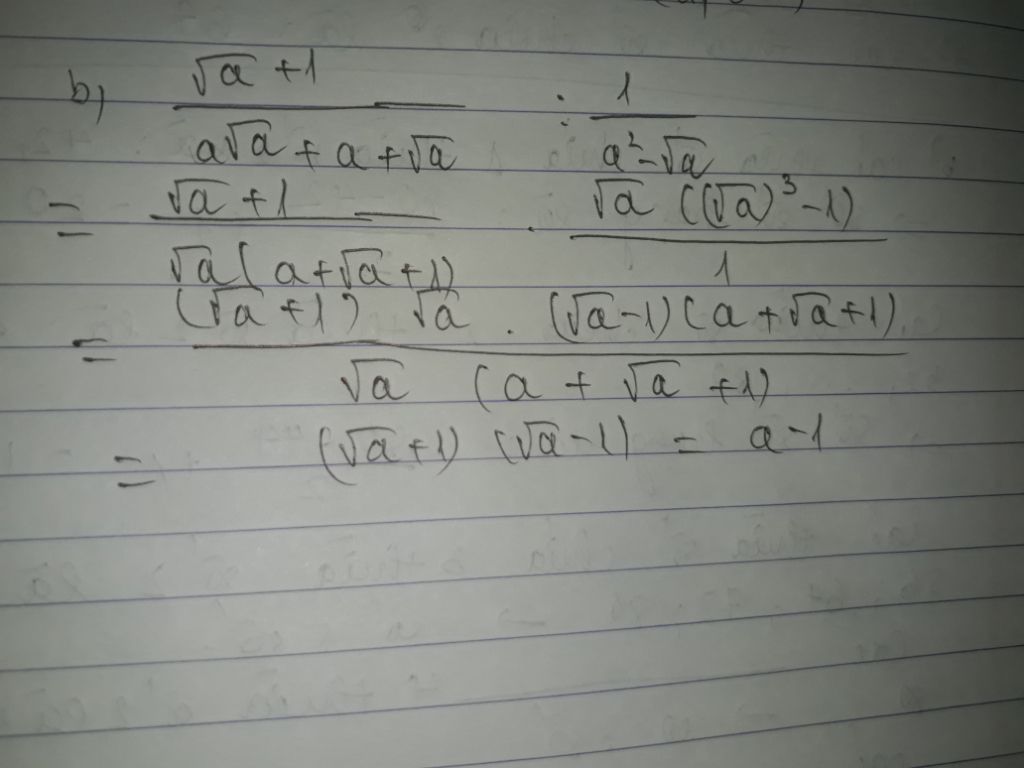 b) (√a + 1)/(a√a + a + √a) : 1/(a² - √a)
= (√a + 1)/(√a (a + √a + 1)) . (√a ((√a)³ - 1))/1
= ((√a + 1) √a . (√a - 1)(a + √a + 1))/(√a (a + √a + 1))
= (√a + 1) (√a - 1) = a - 1